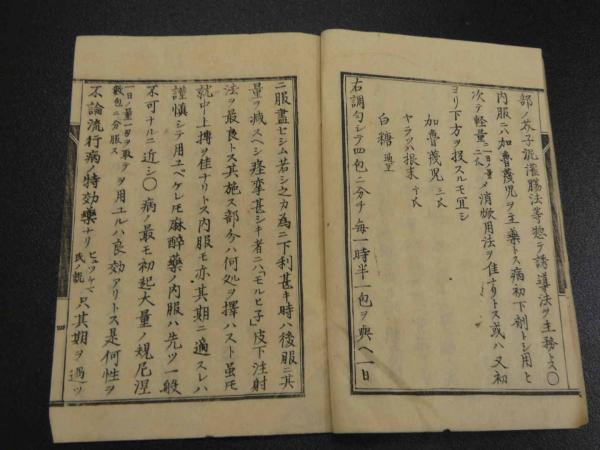 部ノ芥子泥灌腸法等惣テ誘導法ヲ主務トス〇
内服ニハ加魯茂児ヲ主藥トス病初下剤トシ用ヒ
次テ軽量ニ人一日ノ量〆消梍用法ヲ佳ナリトス或ハ又初
ヨリ下方ヲ投スルモ宜シ
加魯茂児 三氏
ヤラッパ根末 十氏
白糖 適宜
右調勻シテ四包ニ分チ毎一時半一包ヲ與ヘ一日
ニ服盡セシム若シ之カ為ニ下利甚キ時ハ後服ニ其
量ヲ減スヘシ痙攣甚シキ者ニハ「モルヒ子」皮下注射
法ヲ最良トス其施ス部今ハ何処ヲ擇ハスト虽モ
就中上搏ヲ佳ナリトス内服モ亦其期ニ適スレハ
謹慎シテ用ユベケレ𪜈麻酔藥ノ内服ハ先ツ一般
不可ナルニ近シ〇病ノ最モ初起大量ノ規尼涅
一日ノ量一匁ヲ取テ数包ニ分服スヲ用ユルハ良効アリトス是何性ヲ
不論流行病ノ特効藥ナリ ヒュツケマ氏ノ説 只其期ヲ過ツ